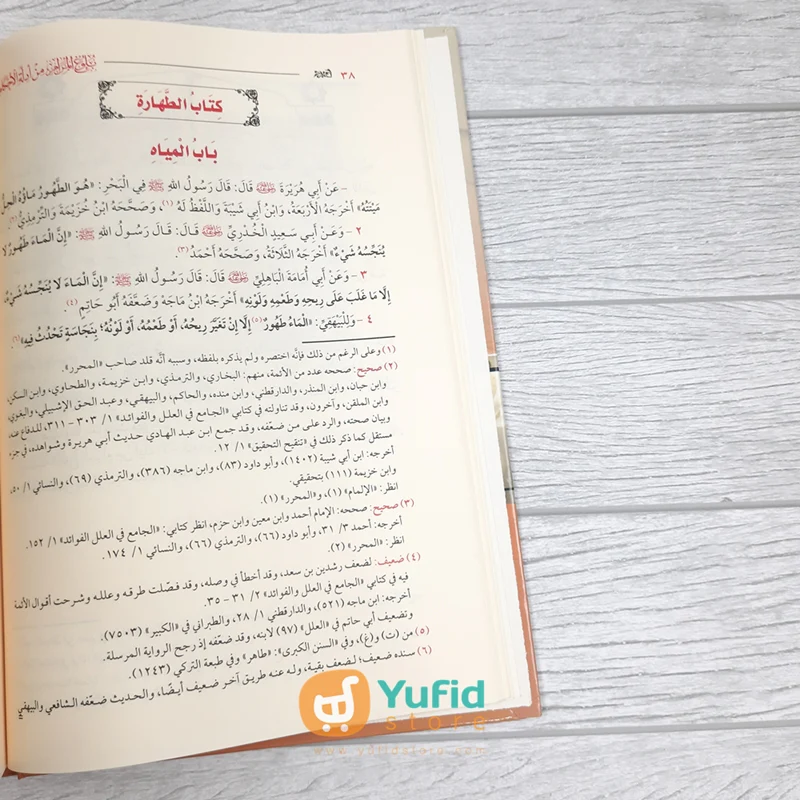 ٣٨
بلوغ المرام من أدلة الأحكام
كِتَابُ الطَّهَارَةِ
بَابُ الْمِيَاهِ
- عَنْ أَبِي هُرَيْرَةَ ﵁ قَالَ: قَالَ رَسُولُ اللهِ ﷺ فِي الْبَحْرِ: «هُوَ الطَّهُورُ مَاؤُهُ الْحِلُّ
مَيْتَتُهُ» أَخْرَجَهُ الْأَرْبَعَةُ، وَابْنُ أَبِي شَيْبَةَ وَاللَّفْظُ لَهُ (١)، وَصَحَّحَهُ ابْنُ خُزَيْمَةَ وَالتِّرْمِذِيُّ (٢).
٢ - وَعَنْ أَبِي سَعِيدٍ الْخُدْرِيِّ ﵁ قَالَ: قَالَ رَسُولُ اللهِ ﷺ: «إِنَّ الْمَاءَ طَهُورٌ لَا
يُنَجِّسُهُ شَيْءٌ» أَخْرَجَهُ الثَّلَاثَةُ، وَصَحَّحَهُ أَحْمَدُ (٣).
٣ - وَعَنْ أَبِي أُمَامَةَ الْبَاهِلِيِّ ﵁ قَالَ: قَالَ رَسُولُ اللهِ ﷺ: «إِنَّ الْمَاءَ لَا يُنَجِّسُهُ شَيْءٌ،
إِلَّا مَا غَلَبَ عَلَى رِيحِهِ وَطَعْمِهِ وَلَوْنِهِ» أَخْرَجَهُ ابْنُ مَاجَهْ وَضَعَّفَهُ أَبُو حَاتِمٍ (٤).
٤ - وَلِلْبَيْهَقِيِّ: «الْمَاءُ طَهُورٌ (٥) إِلَّا إِنْ تَغَيَّرَ رِيحُهُ، أَوْ طَعْمُهُ، أَوْ لَوْنُهُ؛ بِنَجَاسَةٍ تَحْدُثُ فِيهِ» (٦).
(١) وعلى الرغم من ذلك فإنَّه اختصره ولم يذكره بلفظه، وسببه أنَّه قلد صاحب «المحرر».
(٢) صحيح: صححه عدد من الأئمة، منهم: البخاري، والترمذي، وابن خزيمة، والطحاوي، وابن السكن،
وابن حبان، وابن المنذر، والدارقطني، وابن منده، والحاكم، والبيهقي، وعبد الحق الإشبيلي، والبغوي،
وابن الملقن، وآخرون، وقد تناولته في كتابي «الجامع في العلل والفوائد» ١/ ٣٠٣ - ٣١١، للدفاع عنه،
وبيان صحته، والرد على من ضعّفه، وقد جمع ابن عبد الهادي حديث أبي هريرة وشواهده، في جزء
مستقل كما ذكر ذلك في «تنقيح التحقيق» ١/ ١٢.
أخرجه: ابن أبي شيبة (١٤٠٢)، وأبو داود (٨٣)، وابن ماجه (٣٨٦)، والترمذي (٦٩)، والنسائي ١/ ٥٠،
وابن خزيمة (١١١) بتحقيقي.
انظر: «الإلمام» (١)، و«المحرر» (١).
(٣) صحيح: صححه: الإمام أحمد وابن معين وابن حزم، انظر كتابي: «الجامع في العلل الفوائد» ١/ ١٥٢.
أخرجه: أحمد ٣/ ٣١، وأبو داود (٦٦)، والترمذي (٦٦)، والنسائي ١/ ١٧٤.
انظر: «المحرر» (٢).
(٤) ضعيف: لضعف رشدين بن سعد، وقد أخطأ في وصله، وقد فصّلت طرقه وعلله وشرحت أقوال الأئمة
فيه في كتابي «الجامع في العلل والفوائد» ٢/ ٣١ - ٣٥.
أخرجه: ابن ماجه (٥٢١)، والدارقطني ١/ ٢٨، والطبراني في «الكبير» (٧٥٠٣).
وتضعيف أبي حاتم في «العلل» (٩٧) لابنه، وقد ضعّفه إذ رجح الرواية المرسلة.
(٥) من (ت) و(غ)، وفي «السنن الكبرى»: «طاهر» وفي طبعة التركي (١٢٤٣).
(٦) سنده ضعيف؛ لضعف بقية، وله عنه طريق آخر ضعيف أيضًا، والحديث ضعّفه الشافعي والبيهقي
Yufid
store
www.yufidstore.com